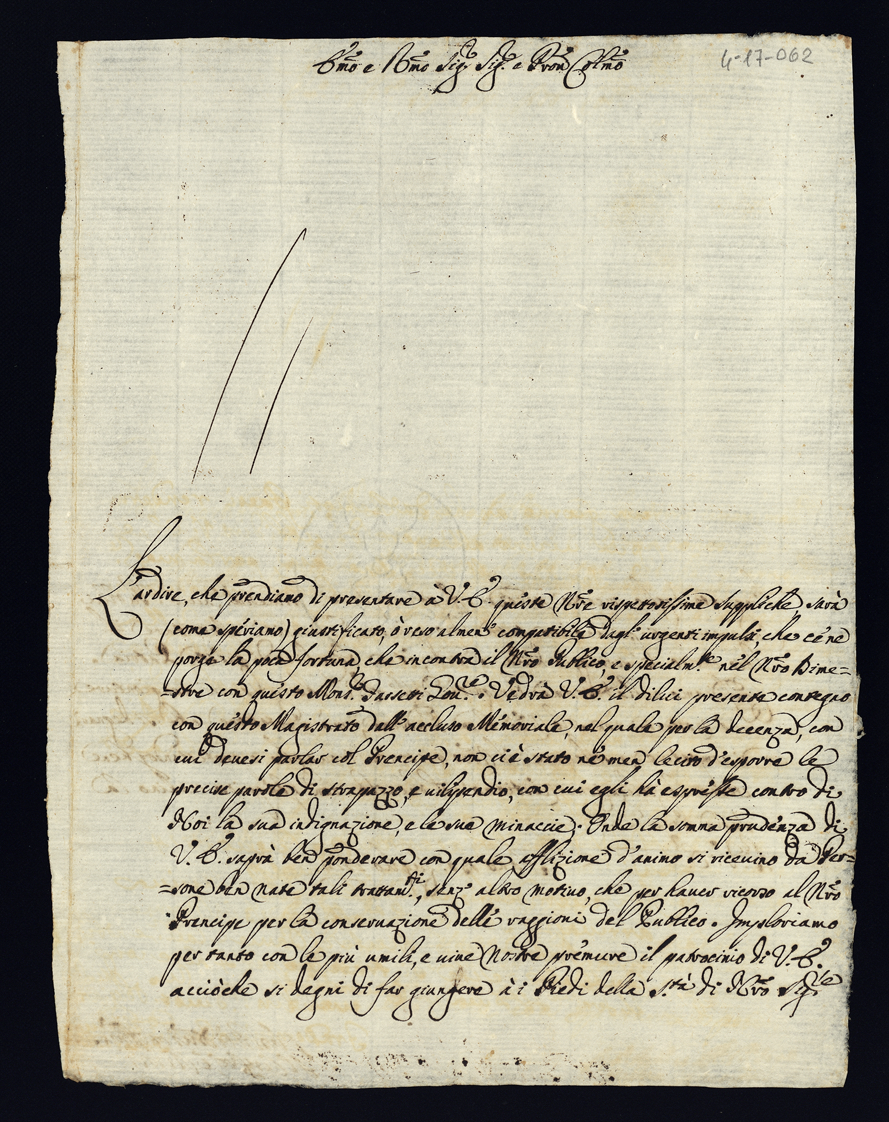 4-17-062
E.mo e R.mo Sig.r Sig.r e Pron Col.mo
L'ardire, che prendiamo di presentare à V. E. queste Nr̃e rispettosissime suppliche sarà
(come speriamo) giustificato, ò reso almen compatibile dagl' urgenti impulsi, che ce ne
porge la poca fortuna, che incontra il Nr̃o Publico, e specialm.te nel Nr̃o Bime=
=stre con questo Mons.r Passeri Gov.re. Vedrà V. E. il di lui presente contegno
con questo Magistrato dall' accluso Memoriale, nel quale per la decenza, con
cui devesi parlar col Prencipe, non ci è stato nè men lecito d'esporre le
precise parole di strapazzo, e vilipendio, con cui egli hà espresse contro di
Noi la sua indignazione, e le sue minaccie; Onde la somma prudenza di
V. E. saprà ben ponderare con quale afflizione d'animo si ricevino da Per=
=sone ben nate tali trattam.ti, senz' altro motivo, che per haver ricorso al Nr̃o
Prencipe per la conservazione delle raggioni del Publico. Imploriamo
per tanto con le più umili, e vive Nostre premure il patrocinio di V. E.
acciòche si degni di far giungere à i Piedi della S.tà di Nr̃o Sig.re le